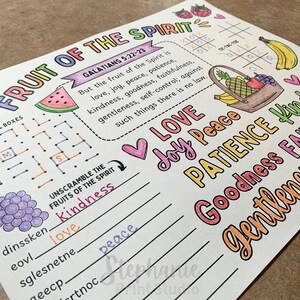 FRUIT OF THE SPIRIT
GALATIANS 5:22-23
But the fruit of the Spirit is
love, joy, peace, patience,
kindness, goodness, faithfulness,
gentleness, self-control, against
such things there is no law.
BOXES
M
S
UNSCRAMBLE THE
FRUITS OF THE SPIRIT
dinssken kindness
eovl love
sglesnetne
peace
LOVE
Joy Peace
PATIENCE
Goodness
Stephanie
Print Studio